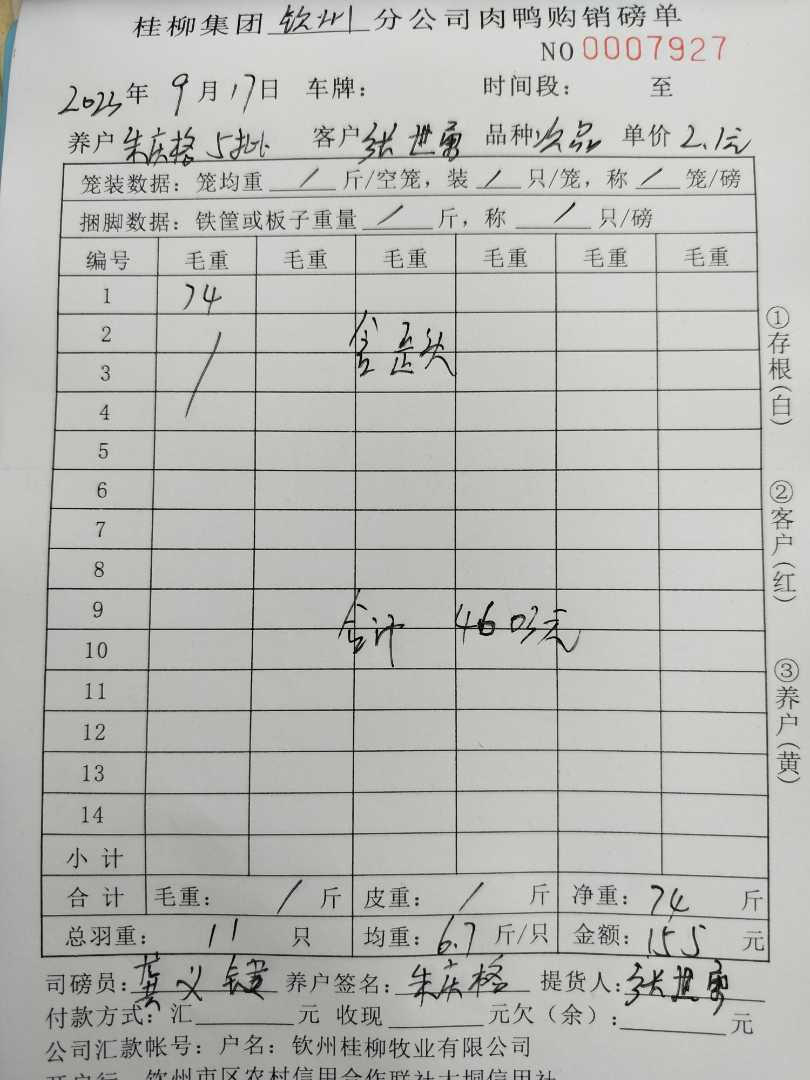 桂柳集团 钦州 分公司肉鸭购销磅单
NO 0007927
2023年 9月17日 车牌: 时间段: 至
养户 朱庆格 5批 客户 张世勇 品种 次品 单价 2.1元
笼装数据: 笼均重 / 斤/空笼, 装 / 只/笼, 称 / 笼/磅
捆脚数据: 铁筐或板子重量 / 斤, 称 / 只/磅
编号 毛重 毛重 毛重 毛重 毛重 毛重
1 74
2 含歪头
3
4
5
6
7
8
9 合计 4603元
10
11
12
13
14
小计
合计 毛重: / 斤 皮重: / 斤 净重: 74 斤
总羽重: 11 只 均重: 6.7 斤/只 金额: 155 元
司磅员: 龚义 养户签名: 朱庆格 提货人: 张世勇
付款方式: 汇 元 收现 元欠(余): 元
公司汇款帐号: 户名: 钦州桂柳牧业有限公司
开户行 钦州市区农村信用合作联社大垌信用社
①存根(白)
②客户(红)
③养户(黄)